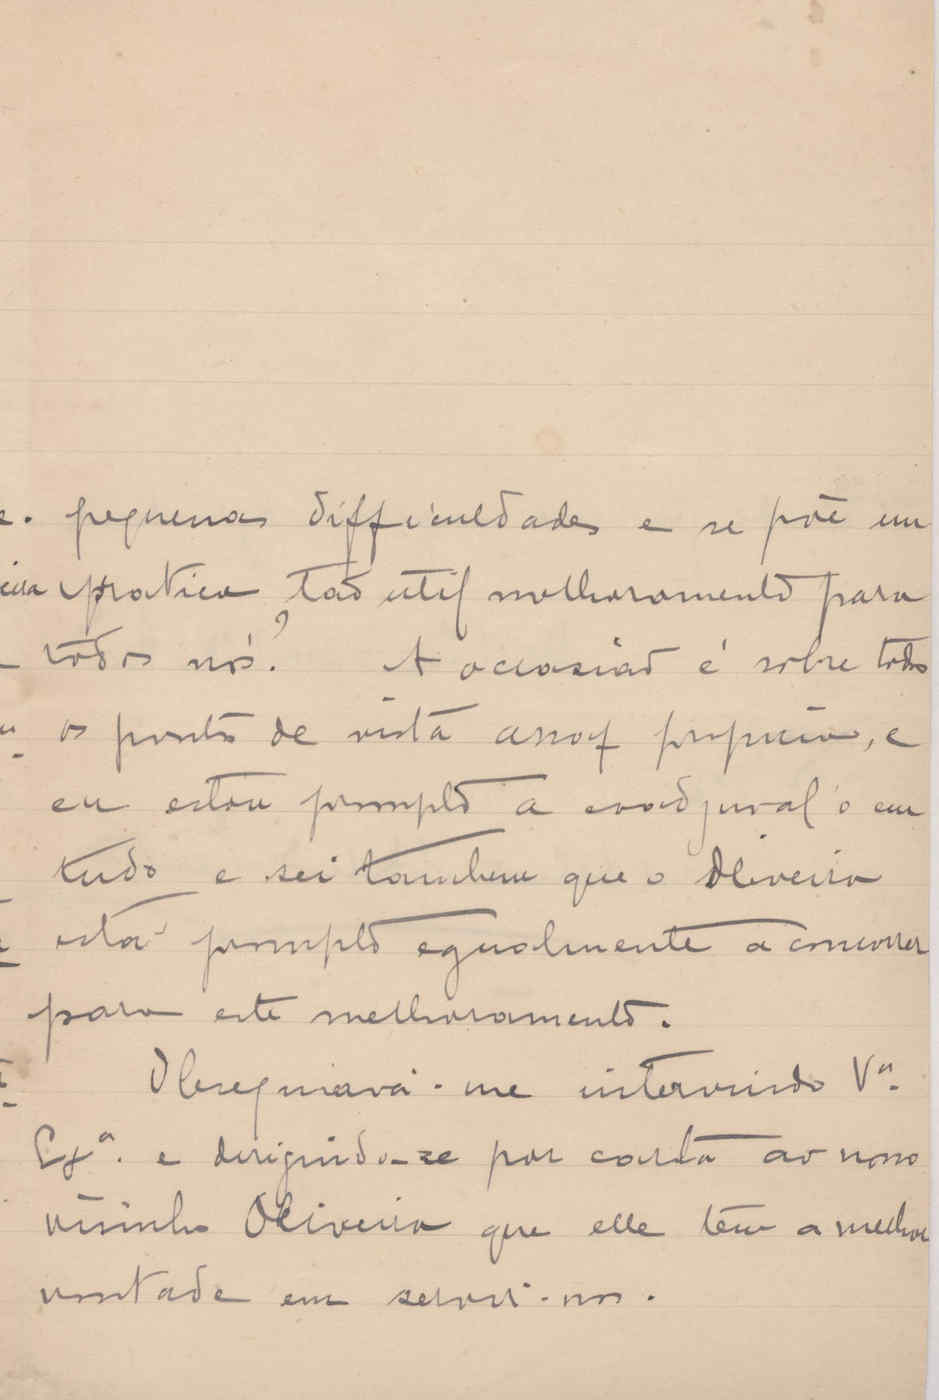 pequenas difficuldades e se põe em
pratica tão util melhoramento para
todos nós? A occasião é sobre todos
os pontos de vista assaz propicia, e
eu estou prompto a coadjuval'o em
tudo e sei tambem que o Oliveira
está prompto egualmente a concorrer
para este melhoramento.
Obsequiava-me intervindo Vª.
Exª. e dirigindo-se por carta ao nosso
visinho Oliveira que elle tem a melhor
vontade em servir-nos.